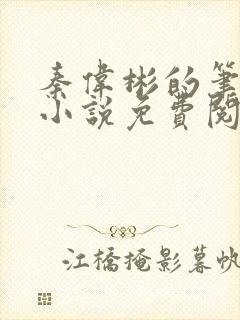 秦偉彬的筆
小說免費閱
江橋掩影暮帆